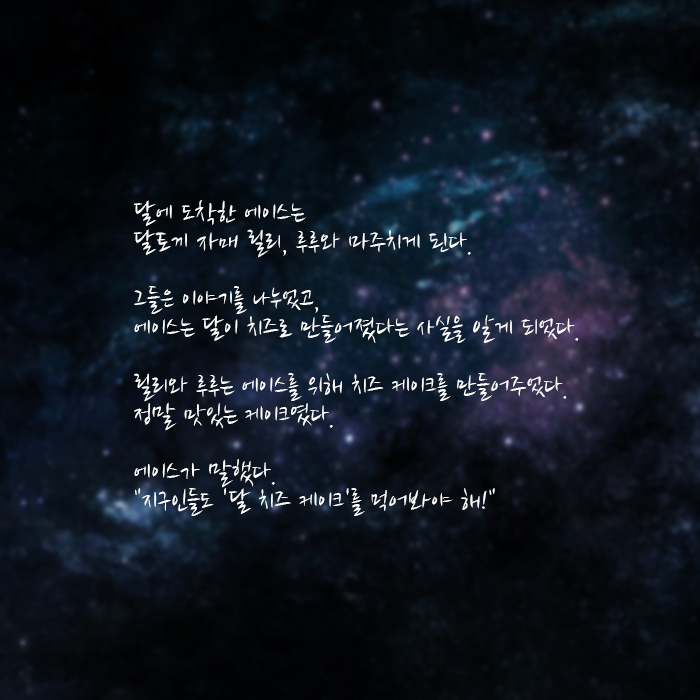 달에 도착한 에이스는
달토끼 자매 릴리, 루루와 마주치게 된다.
그들은 이야기를 나누었고,
에이스는 달이 치즈로 만들어졌다는 사실을 알게 되었다.
릴리와 루루는 에이스를 위해 치즈 케이크를 만들어주었다.
정말 맛있는 케이크였다.
에이스가 말했다.
"지구인들도 '달 치즈 케이크'를 먹어봐야 해!"